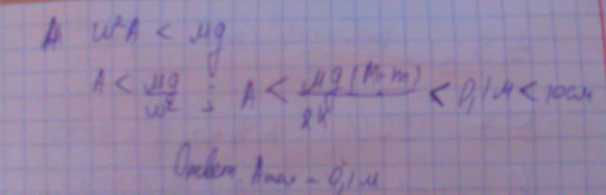 ω²A < μg
A < μg/ω² ; A < μg(M+m)/2k < 0,1м < 10см
Ответ: Amax = 0,1м